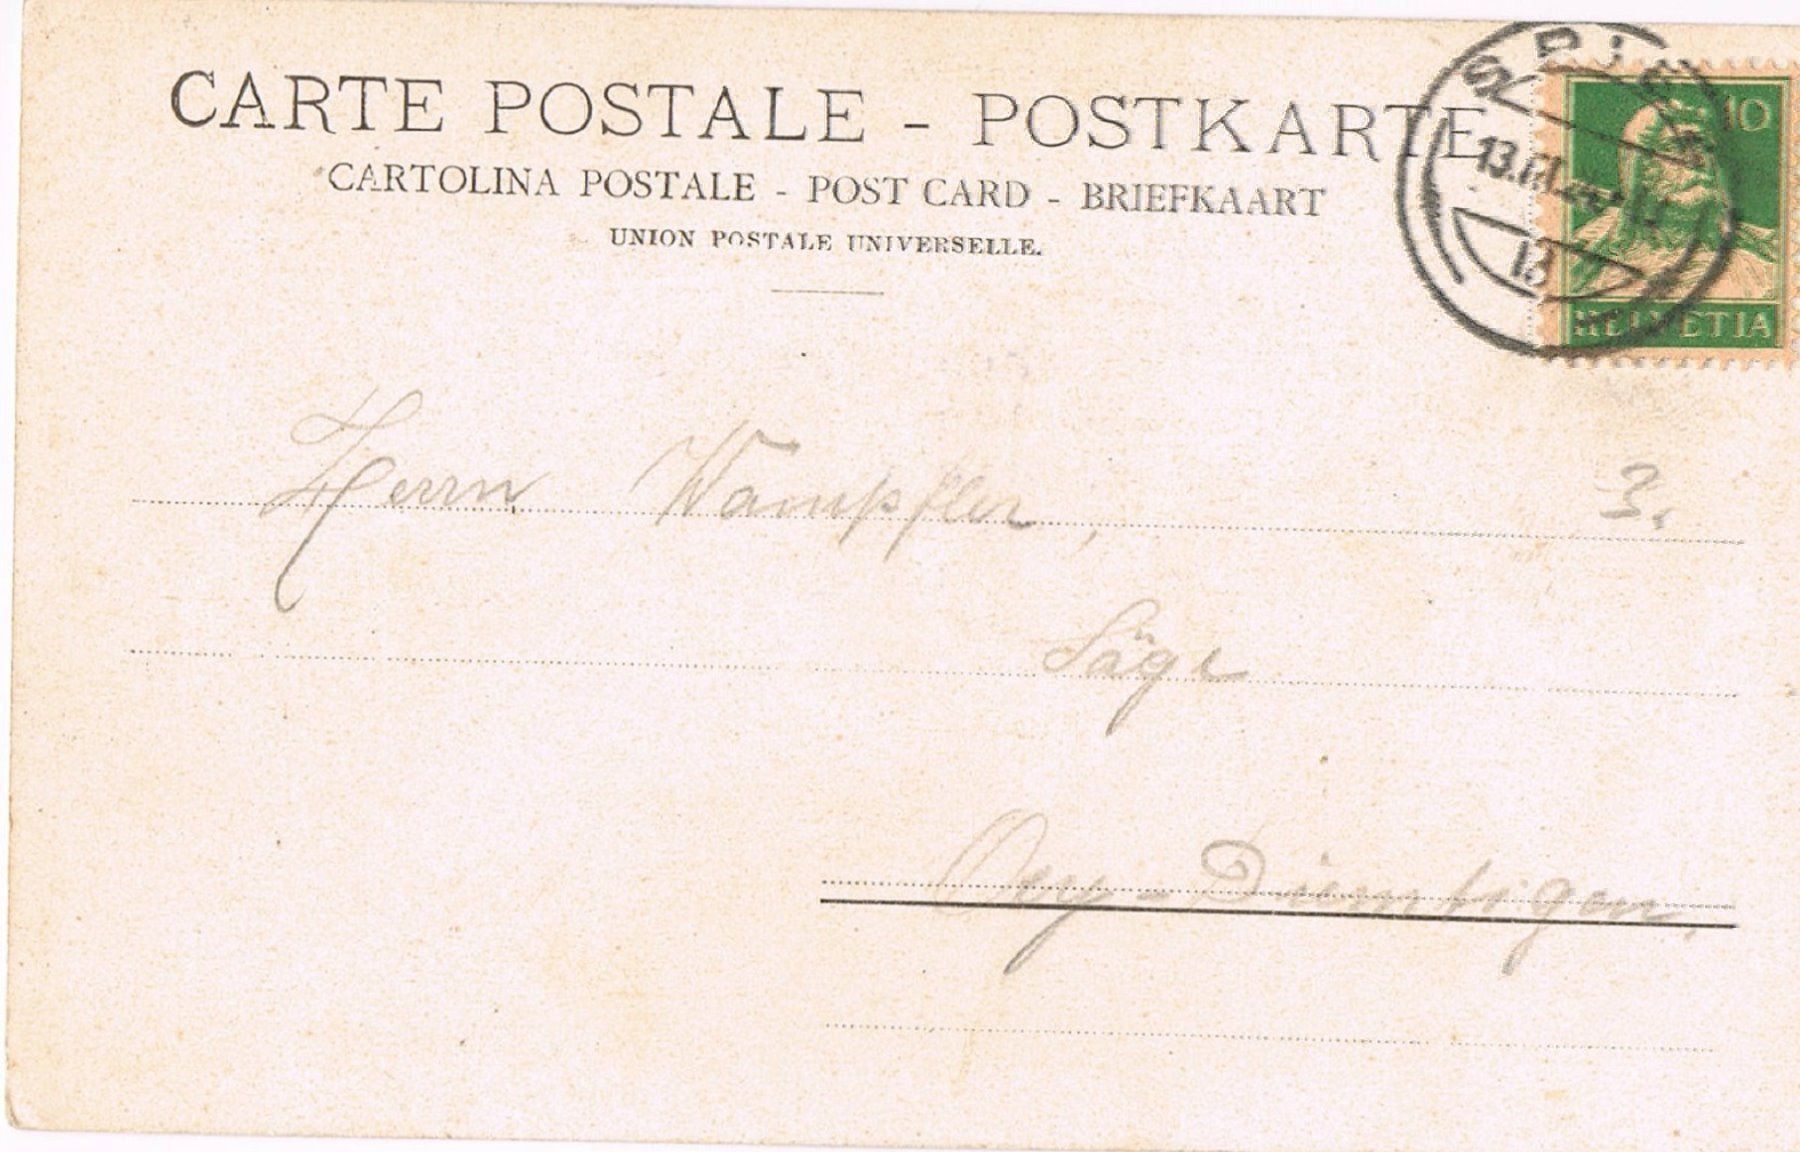 CARTE POSTALE - POSTKARTE
CARTOLINA POSTALE - POST CARD - BRIEFKAART
UNION POSTALE UNIVERSELLE.
SPIEZ
10
13
HELVETIA
Herrn Wampfler,
3.
Säge
Oey-Diemtigen,